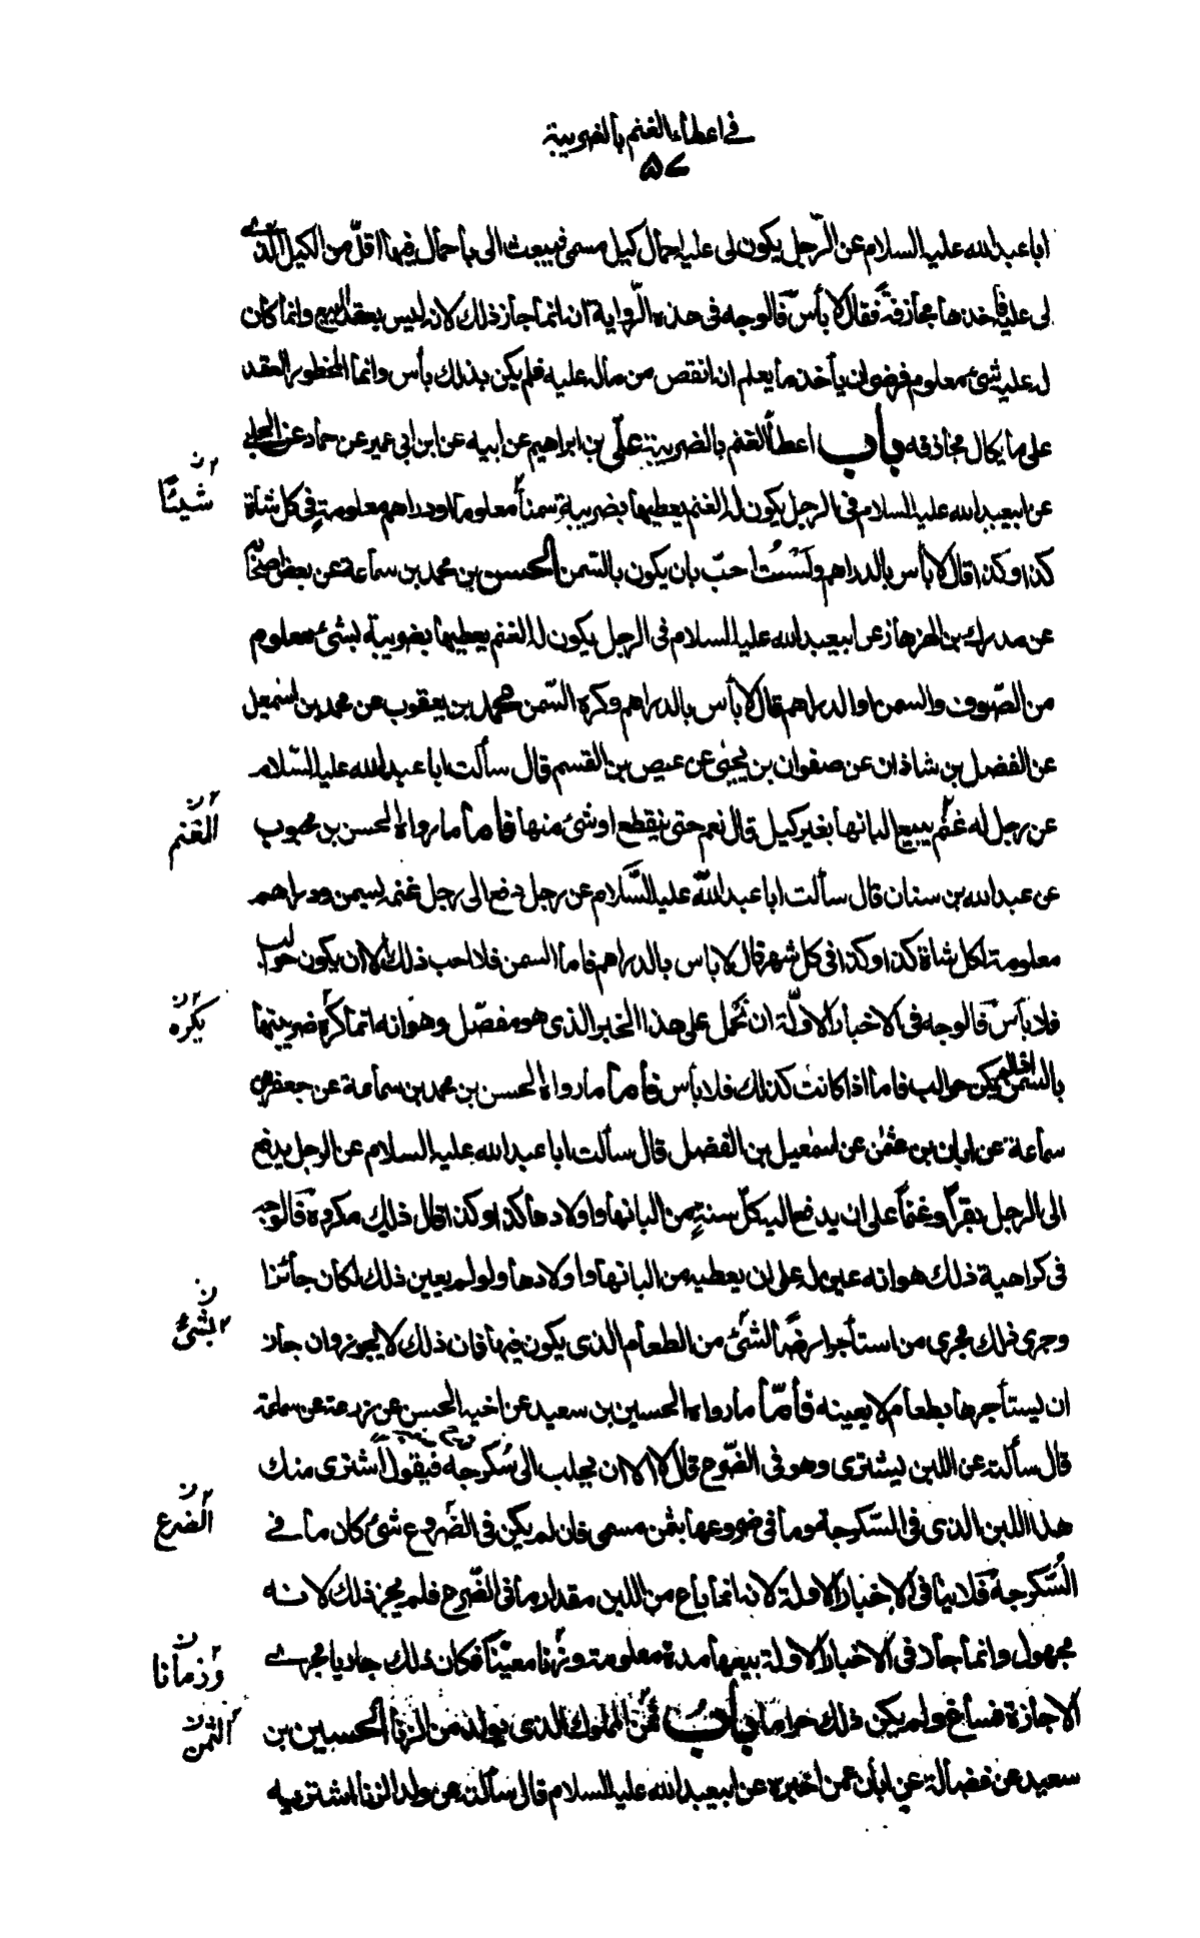 في اعطاء الغنم بالضريبة
٥٧
ابا عبد الله عليه السلام عن الرّجل يكون لى عليه احمال كيل مسمى فيبعث الى باحمال فيها اقلّ من الكيل الذى
لى عليه فآخذها مجازفة فقال لا بأس فالوجه فى هذه الرّواية انه انما جاز ذلك لانه ليس بعقد البيع وانما كان
له عليه شئ معلوم فرضى ان يأخذ ما يعلم انه انقص من ماله عليه فلم يكن بذلك بأس وانما المحظور العقد
على ما يكال مجازفه باب اعطاء الغنم بالضريبة علّى بن ابراهيم عن ابيه عن ابن ابى عمير عن حماد عن الحلبى
شيئًا ن
عن ابيعبد الله عليه السلام فى الرجل يكون له الغنم يعطيها بضريبة سمناً معلوما او دراهم معلومة فى كل شاة
كذا وكذا قال لا بأس بالدراهم ولَسْتُ احبّ بان يكون بالسّمن الحسن بن محمد بن سماعة عن بعض اصحابه
عن مدرك بن الهزهاز عن ابيعبد الله عليه السلام فى الرجل يكون له الغنم يعطيها بضريبة بشئ معلوم
من الصّوف والسمن او الدراهم قال لا بأس بالدراهم وكره السّمن محمد بن يعقوب عن محمد بن اسمعيل
عن الفضل بن شاذان عن صفوان بن يحيى عن عيص بن القسم قال سألت ابا عبد الله عليه السّلام
الغنم ن
عن رجل له غنم يبيع البانها بغير كيل قال نعم حتى ينقطع او شئ منها فاما ما رواه الحسن بن محبوب
عن عبد الله بن سنان قال سألت ابا عبد اللّه عليه السَّلام عن رجل دفع الى رجل غنمه بسمن ودراهم
معلومة لكل شاة كذا وكذا فى كل شهر قال لا باس بالدراهم فاما السمن فلا احب ذلك الا ان يكون حوالب
يكره ن
فلا بأس فالوجه فى الاخبار الاولّة ان نحمل على هذا الخبر الذى هو مفصّل وهو انه انما كره ضريبتها
بالسمن اذا لم يكن حوالب فاما اذا كانت كذلك فلا بأس فأما ما رواه الحسن بن محمد بن سماعة عن جعفر بن
سماعة عن ابان بن عثمن عن اسمعيل بن الفضل قال سألت ابا عبد الله عليه السلام عن الرجل يدفع
الى الرجل بقرًا وغنمًا على ان يدفع اليه كلّ سنةٍ من البانها واولادها كذا وكذا قال ذلك مكروه فالوجه
فى كراهية ذلك هو انه عين له على ان يعطيه من البانها واولادها ولو لم يعين ذلك لكان جائزا
بشئ ن
وجرى ذلك مجرى من استأجر ارضًا الشئ من الطعام الذى يكون فيها فان ذلك لا يجوز وان جاز
ان يستأجرها بطعام لا يعينه فأمّا ما رواه الحسين بن سعيد عن اخيه الحسن عن زرعة عن سماعة
قال سألته عن اللبن يشترى وهو فى الضّرع قال لا الا ان يحلب الى سُكرجه فيقول اشترى منك
الضرع ن
هذا اللبن الذى فى السّكرجة وما فى ضروعها بثمن مسمى فان لم يكن فى الضّروع شئ كان ما فى
السُّكرجة فلا ينا فى الاخبار الاولة لانه انما باع من اللبن مقدار ما فى الضّرع فلم يجز ذلك لانه
وزمانا ن
مجهول وانما جاز فى الاخبار الاولة بيعها مدة معلومة وزمنا معيّناً فكان ذلك جاريا مجرى
الثمن ن
الاجازة فساغ ولم يكن ذلك حراما باب ثمن المملوك الذى يولد من الزنا الحسين بن
سعيد عن فضالة عن ابان عمن اخبره عن ابيعبد الله عليه السلام قال سألته عن ولد الزنا اشتريه